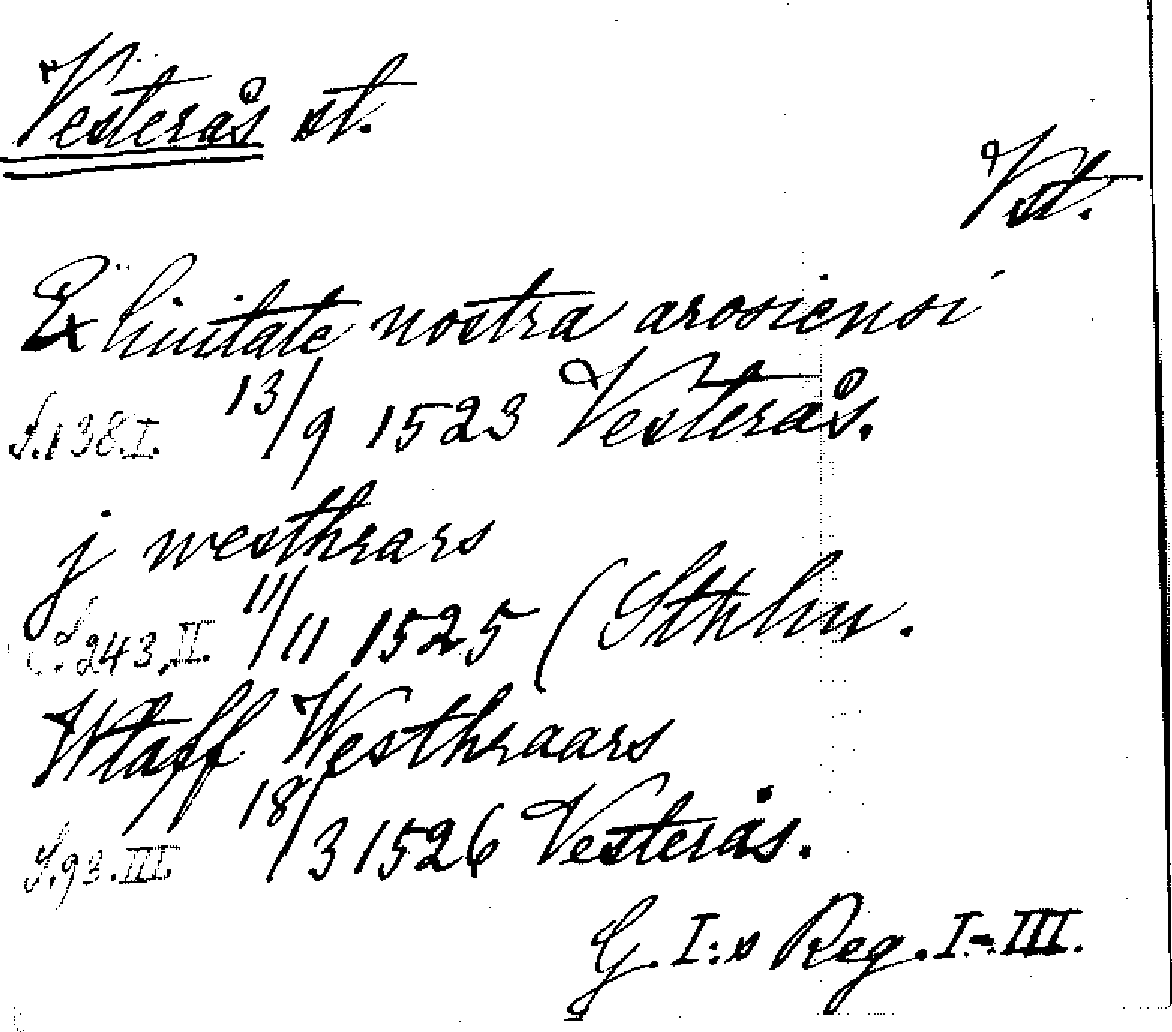 Vesterås st.
Vst.
Ex Ciuitate nostra arosiensi
S. 138. I. 13/9 1523 Vesterås.
j westhrars
S. 243, II. 11/11 1525 (Sthlm.
Wtaff Westhraars
S. 93. III. 18/3 1526 Vesterås.
G. I:s Reg. I-III.